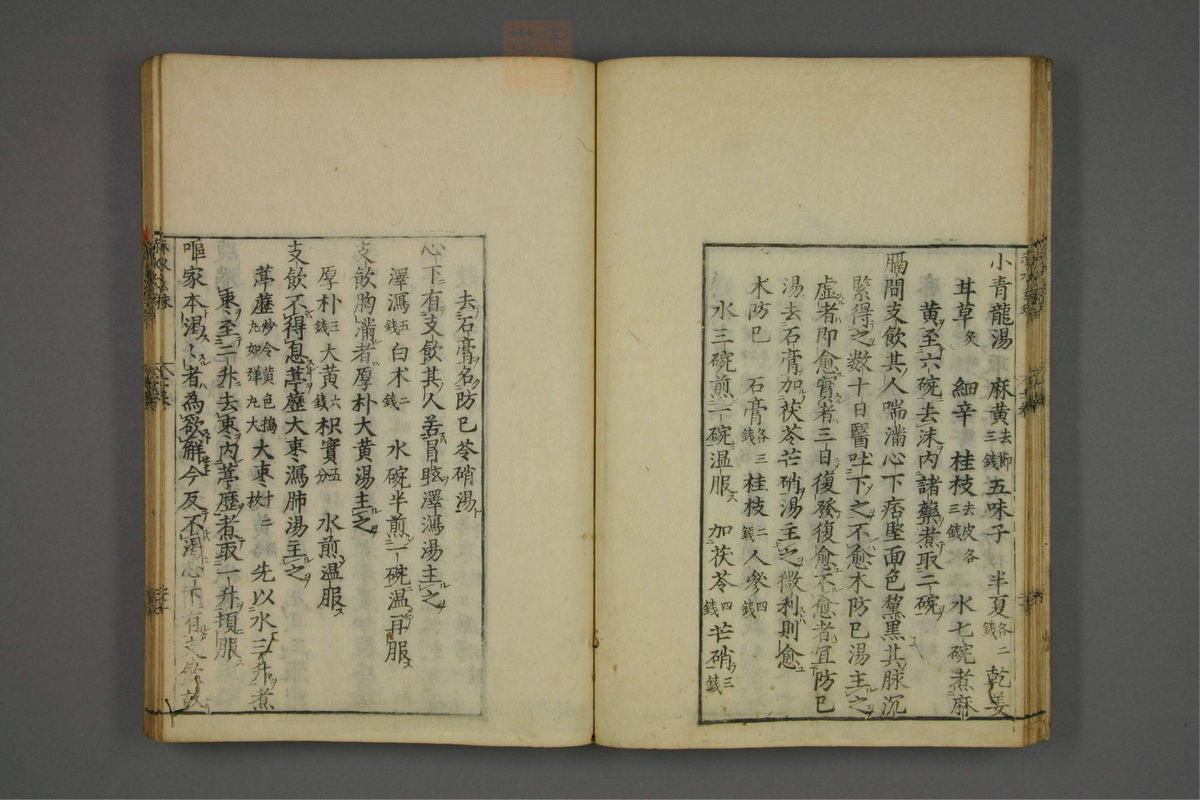 小青龍湯　麻黄去節三錢五味子　半夏各二錢　乾姜
甘草炙　細辛　桂枝去皮各三錢　水七碗煮麻
黄至六碗去沫内諸藥煮取二碗
膈間支飲其人喘滿心下痞堅面色黧黒其脉沉
緊得之数十日醫吐下之不愈木防已湯主之
虚者即愈實者三日復發復愈不愈者宜防已
湯去石膏加茯苓芒硝湯主之微利則愈
木防已　石膏各三錢桂枝二錢人參四錢
水三碗煎一碗温服　加茯苓四錢芒硝三錢
去石膏名防已苓硝湯
心下有支飲其人苦冒眩澤瀉湯主之
澤瀉五錢白朮二錢　水碗半煎一碗温再服
支飲胸滿者厚朴大黄湯主之
厚朴三錢大黄六錢枳實五分　水煎温服
支飲不得息葶藶大枣瀉肺湯主之
葶藶炒令黄色搗丸如弾丸大大枣十二枚　先以水三升煮
枣至二升去枣内葶歴煮取一升頓服
嘔家本渴〻者為欲解今反不渴心下有支飲故